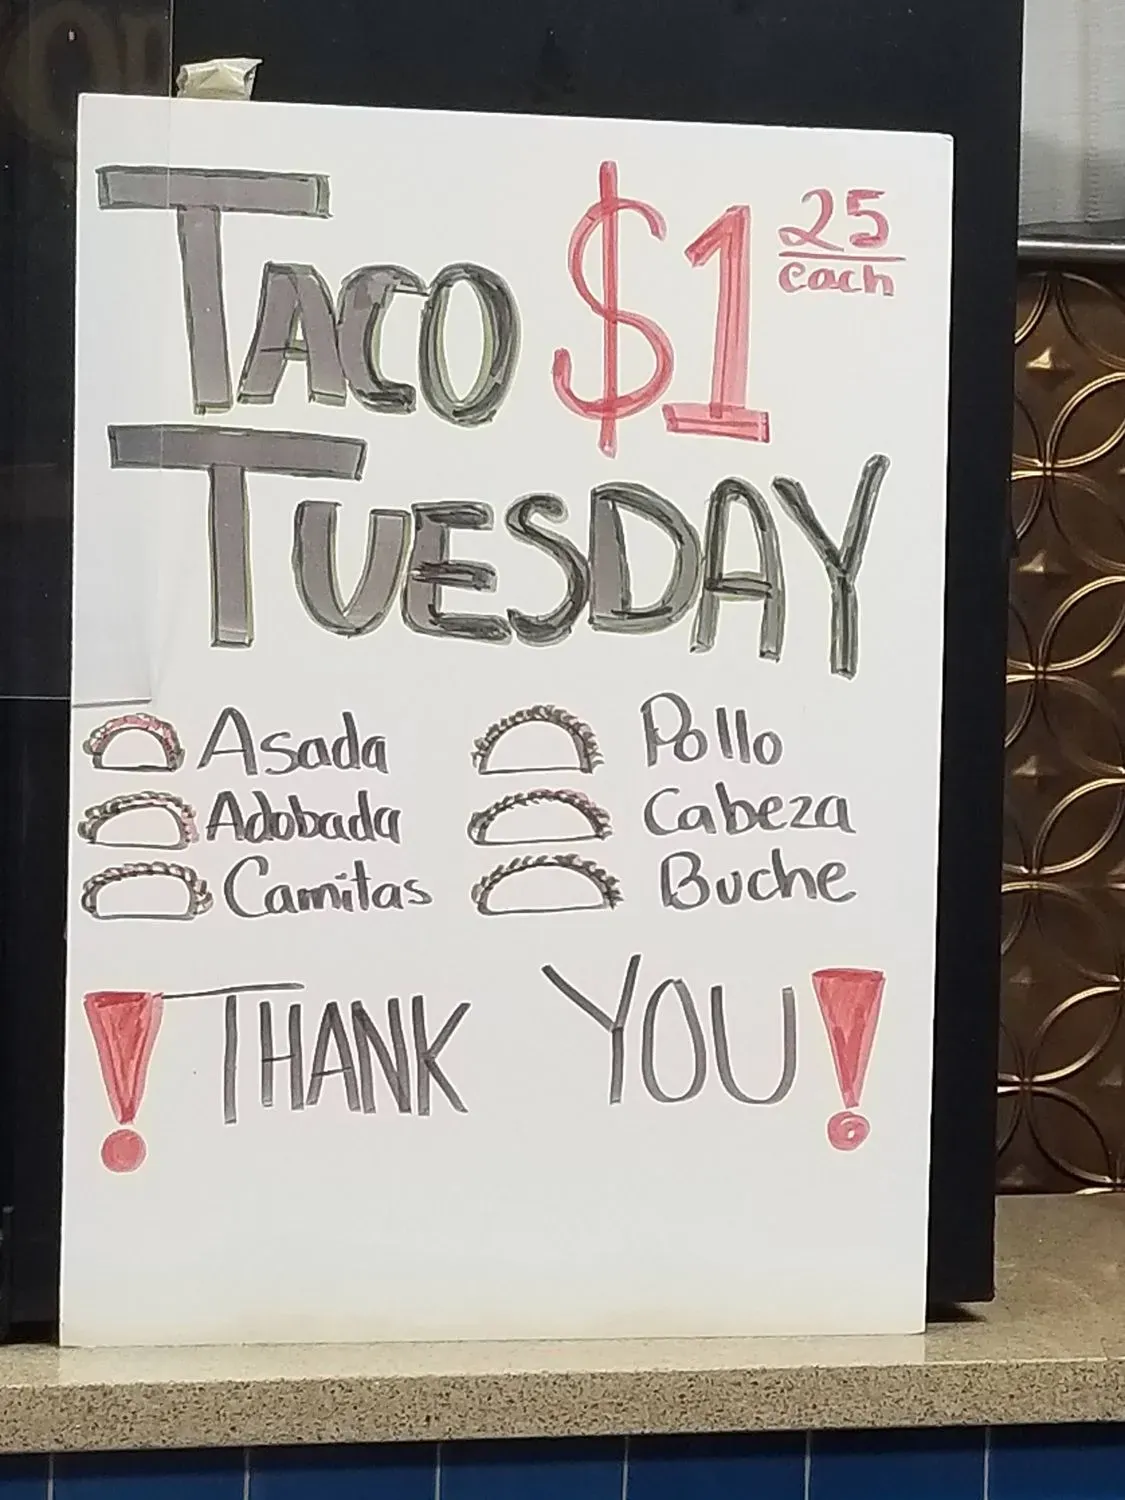 TACO $1 25
each
TUESDAY
Asada Pollo
Adobada Cabeza
Carnitas Buche
! THANK YOU !